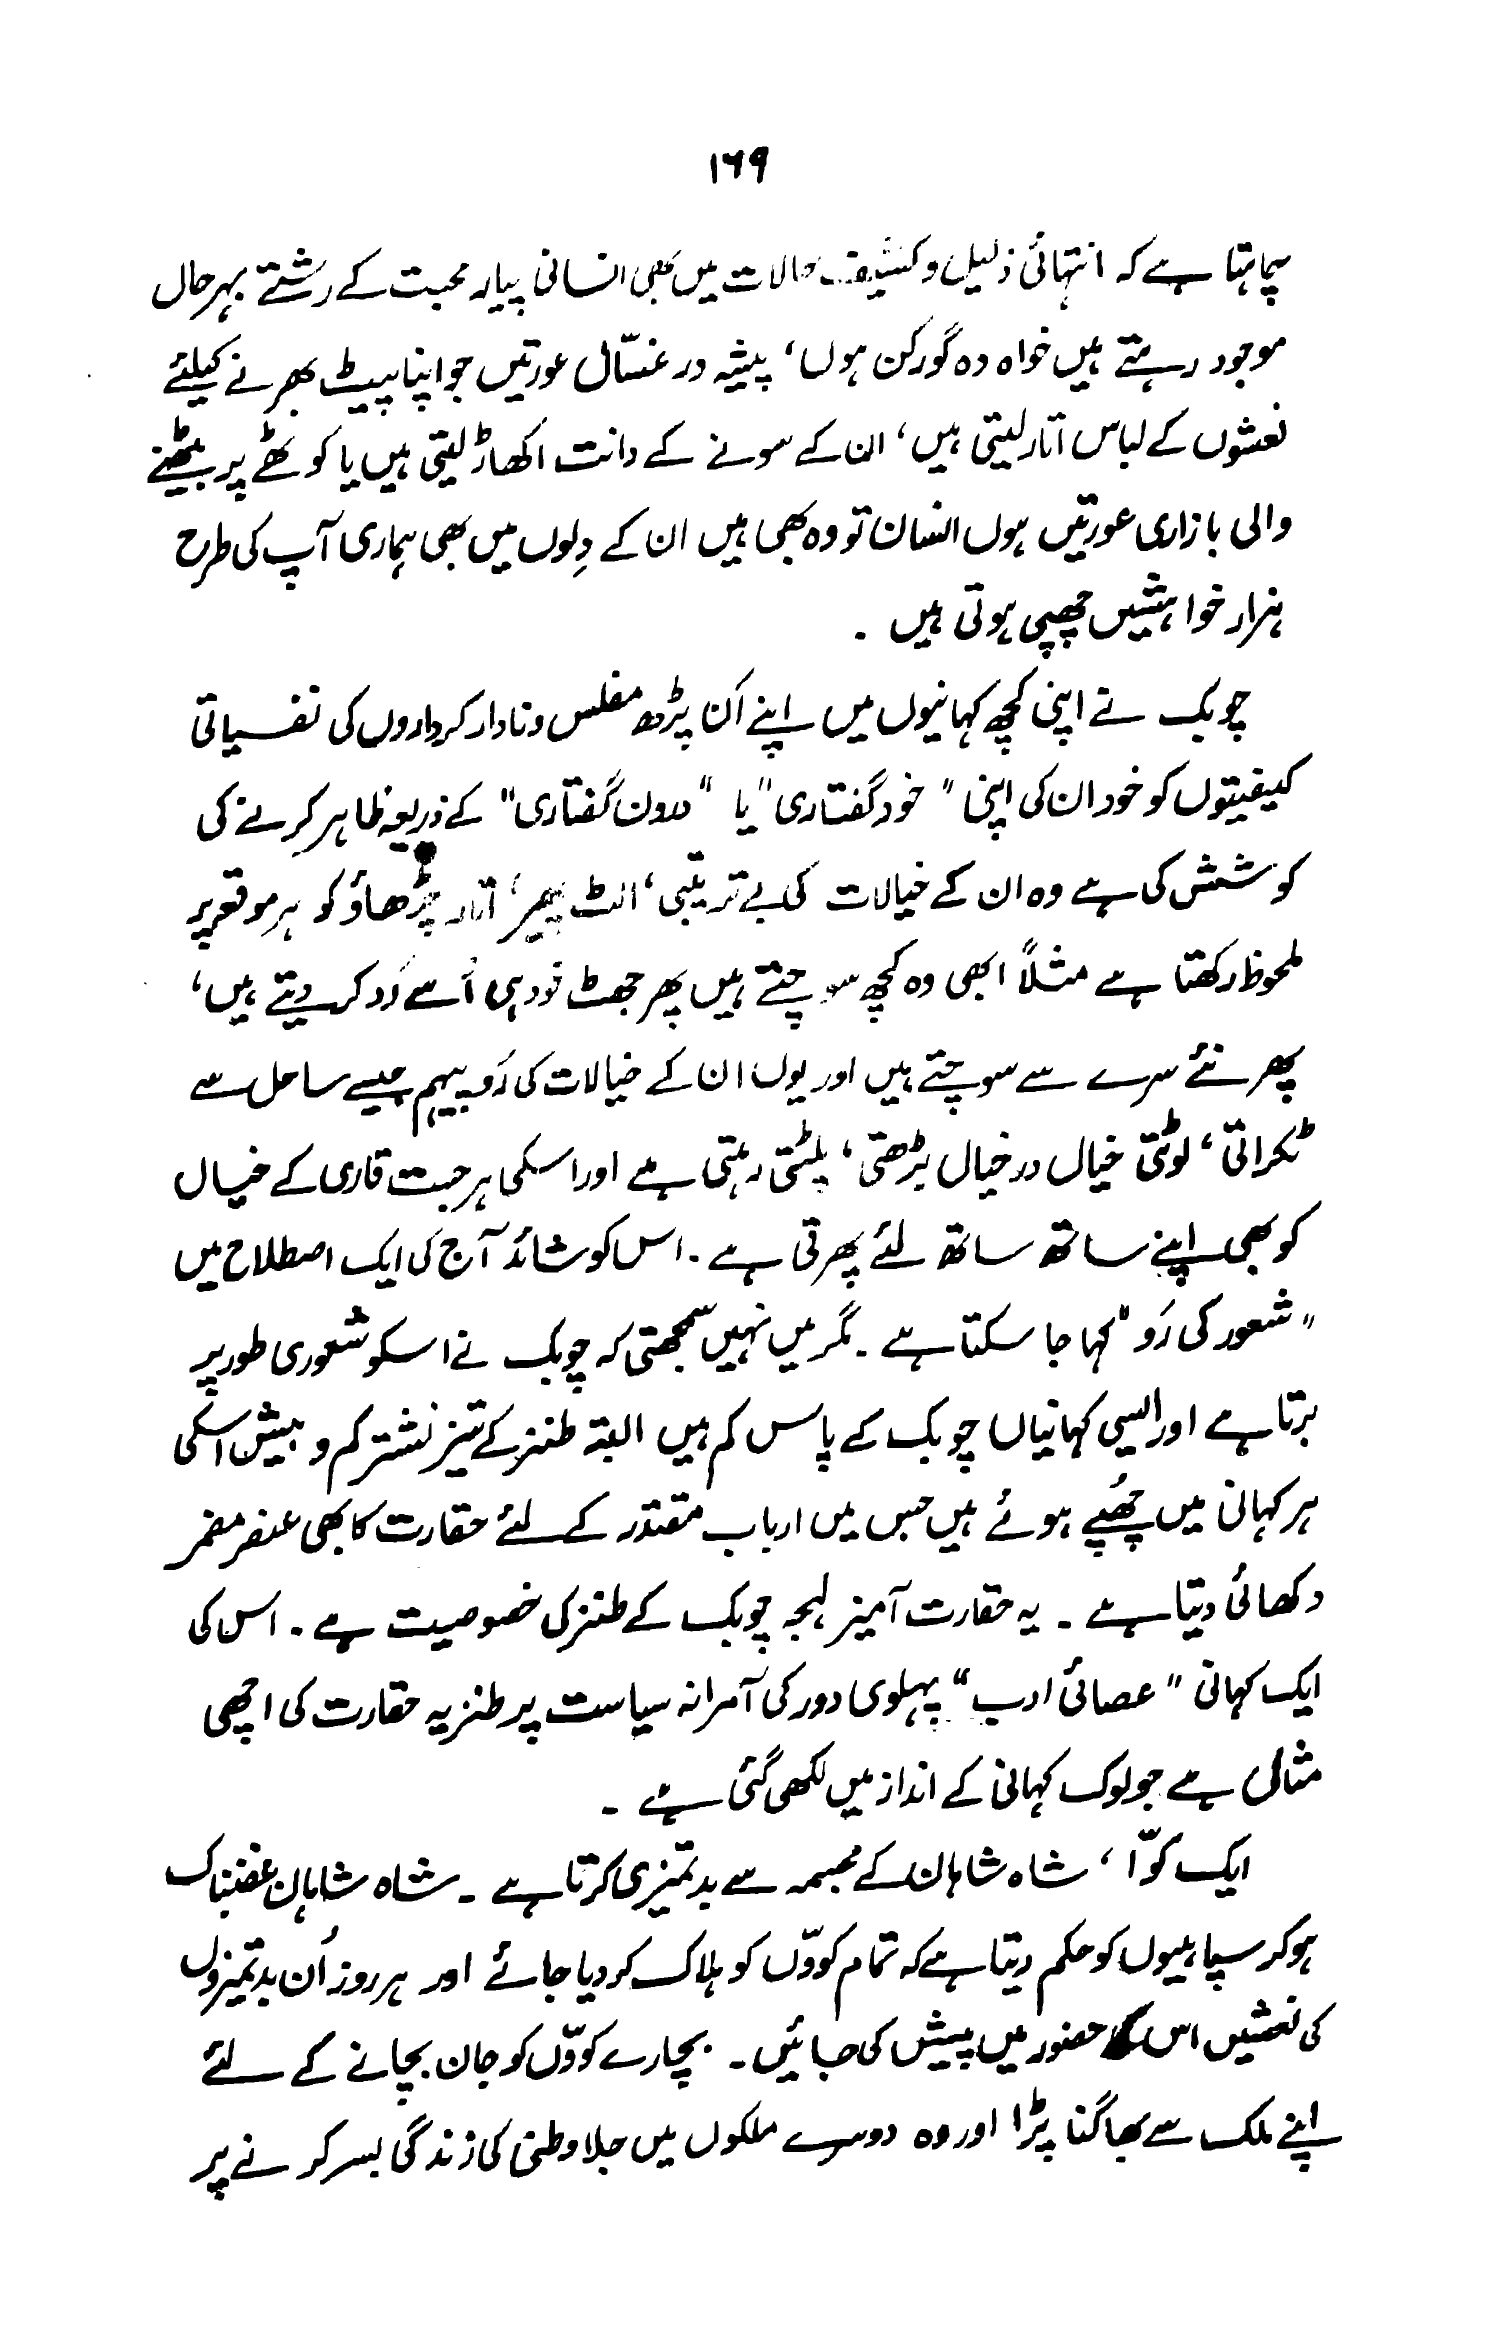 ۱۶۹
چاہتا ہے کہ انتہائی ذلیل و کثیف حالات میں بھی انسانی پیار محبت کے رشتے بہرحال
موجود رہتے ہیں خواہ وہ گورکن ہوں، پیشہ ور غسّال عورتیں جو اپنا پیٹ بھرنے کیلئے
نعشوں کے لباس اتار لیتی ہیں، ان کے سونے کے دانت اکھاڑ لیتی ہیں یا کوٹھے پر بیٹھنے
والی بازاری عورتیں ہوں انسان تو وہ بھی ہیں ان کے دِلوں میں بھی ہماری آپ کی طرح
ہزار خواہشیں چھپی ہوتی ہیں ۔
چوبک نے اپنی کچھ کہانیوں میں اپنے اَن پڑھ مفلس و نادار کرداروں کی نفسیاتی
کیفیتوں کو خود ان کی اپنی " خود گفتاری" یا " درون گفتاری" کے ذریعہ ظاہر کرنے کی
کوشش کی ہے وہ ان کے خیالات کی بے ترتیبی، الٹ پھیر، اتار چڑھاؤ کو ہر موقعہ پر
ملحوظ رکھتا ہے مثلاً ابھی وہ کچھ سوچتے ہیں پھر جھٹ خود ہی اُسے رَد کر دیتے ہیں،
پھر نئے سرے سے سوچتے ہیں اور یوں ان کے خیالات کی رَو پیہم جیسے ساحل سے
ٹکراتی، لوٹتی خیال در خیال بڑھتی، پلٹتی رہتی ہے اور اسکی ہر جست قاری کے خیال
کو بھی اپنے ساتھ ساتھ لئے پھرتی ہے ۔ اس کو شائد آج کی ایک اصطلاح میں
" شعور کی رَو " کہا جا سکتا ہے ۔ مگر میں نہیں سمجھتی کہ چوبک نے اسکو شعوری طور پر
برتا ہے اور ایسی کہانیاں چوبک کے پاس کم ہیں البتہ طنز کے تیز نشتر کم و بیش اسکی
ہر کہانی میں چھُپے ہوئے ہیں جس میں ارباب مقتدر کے لئے حقارت کا بھی عنصر مضمر
دکھائی دیتا ہے ۔ یہ حقارت آمیز لہجہ چوبک کے طنز کی خصوصیت ہے ۔ اس کی
ایک کہانی " عصائی ادب " پہلوی دور کی آمرانہ سیاست پر طنزیہ حقارت کی اچھی
مثال ہے جو لوک کہانی کے انداز میں لکھی گئی ہے ۔
ایک کوّا، شاہ شاہان کے مجسمہ سے بدتمیزی کرتا ہے ۔ شاہ شاہان غضبناک
ہو کر سپاہیوں کو حکم دیتا ہے کہ تمام کووّں کو ہلاک کر دیا جائے اور ہر روز اُن بدتمیزوں
کی نعشیں اس حضور میں پیش کی جائیں ۔ بچارے کووّں کو جان بچانے کے لئے
اپنے ملک سے بھاگنا پڑا اور وہ دوسرے ملکوں میں جلاوطنی کی زندگی بسر کرنے پر